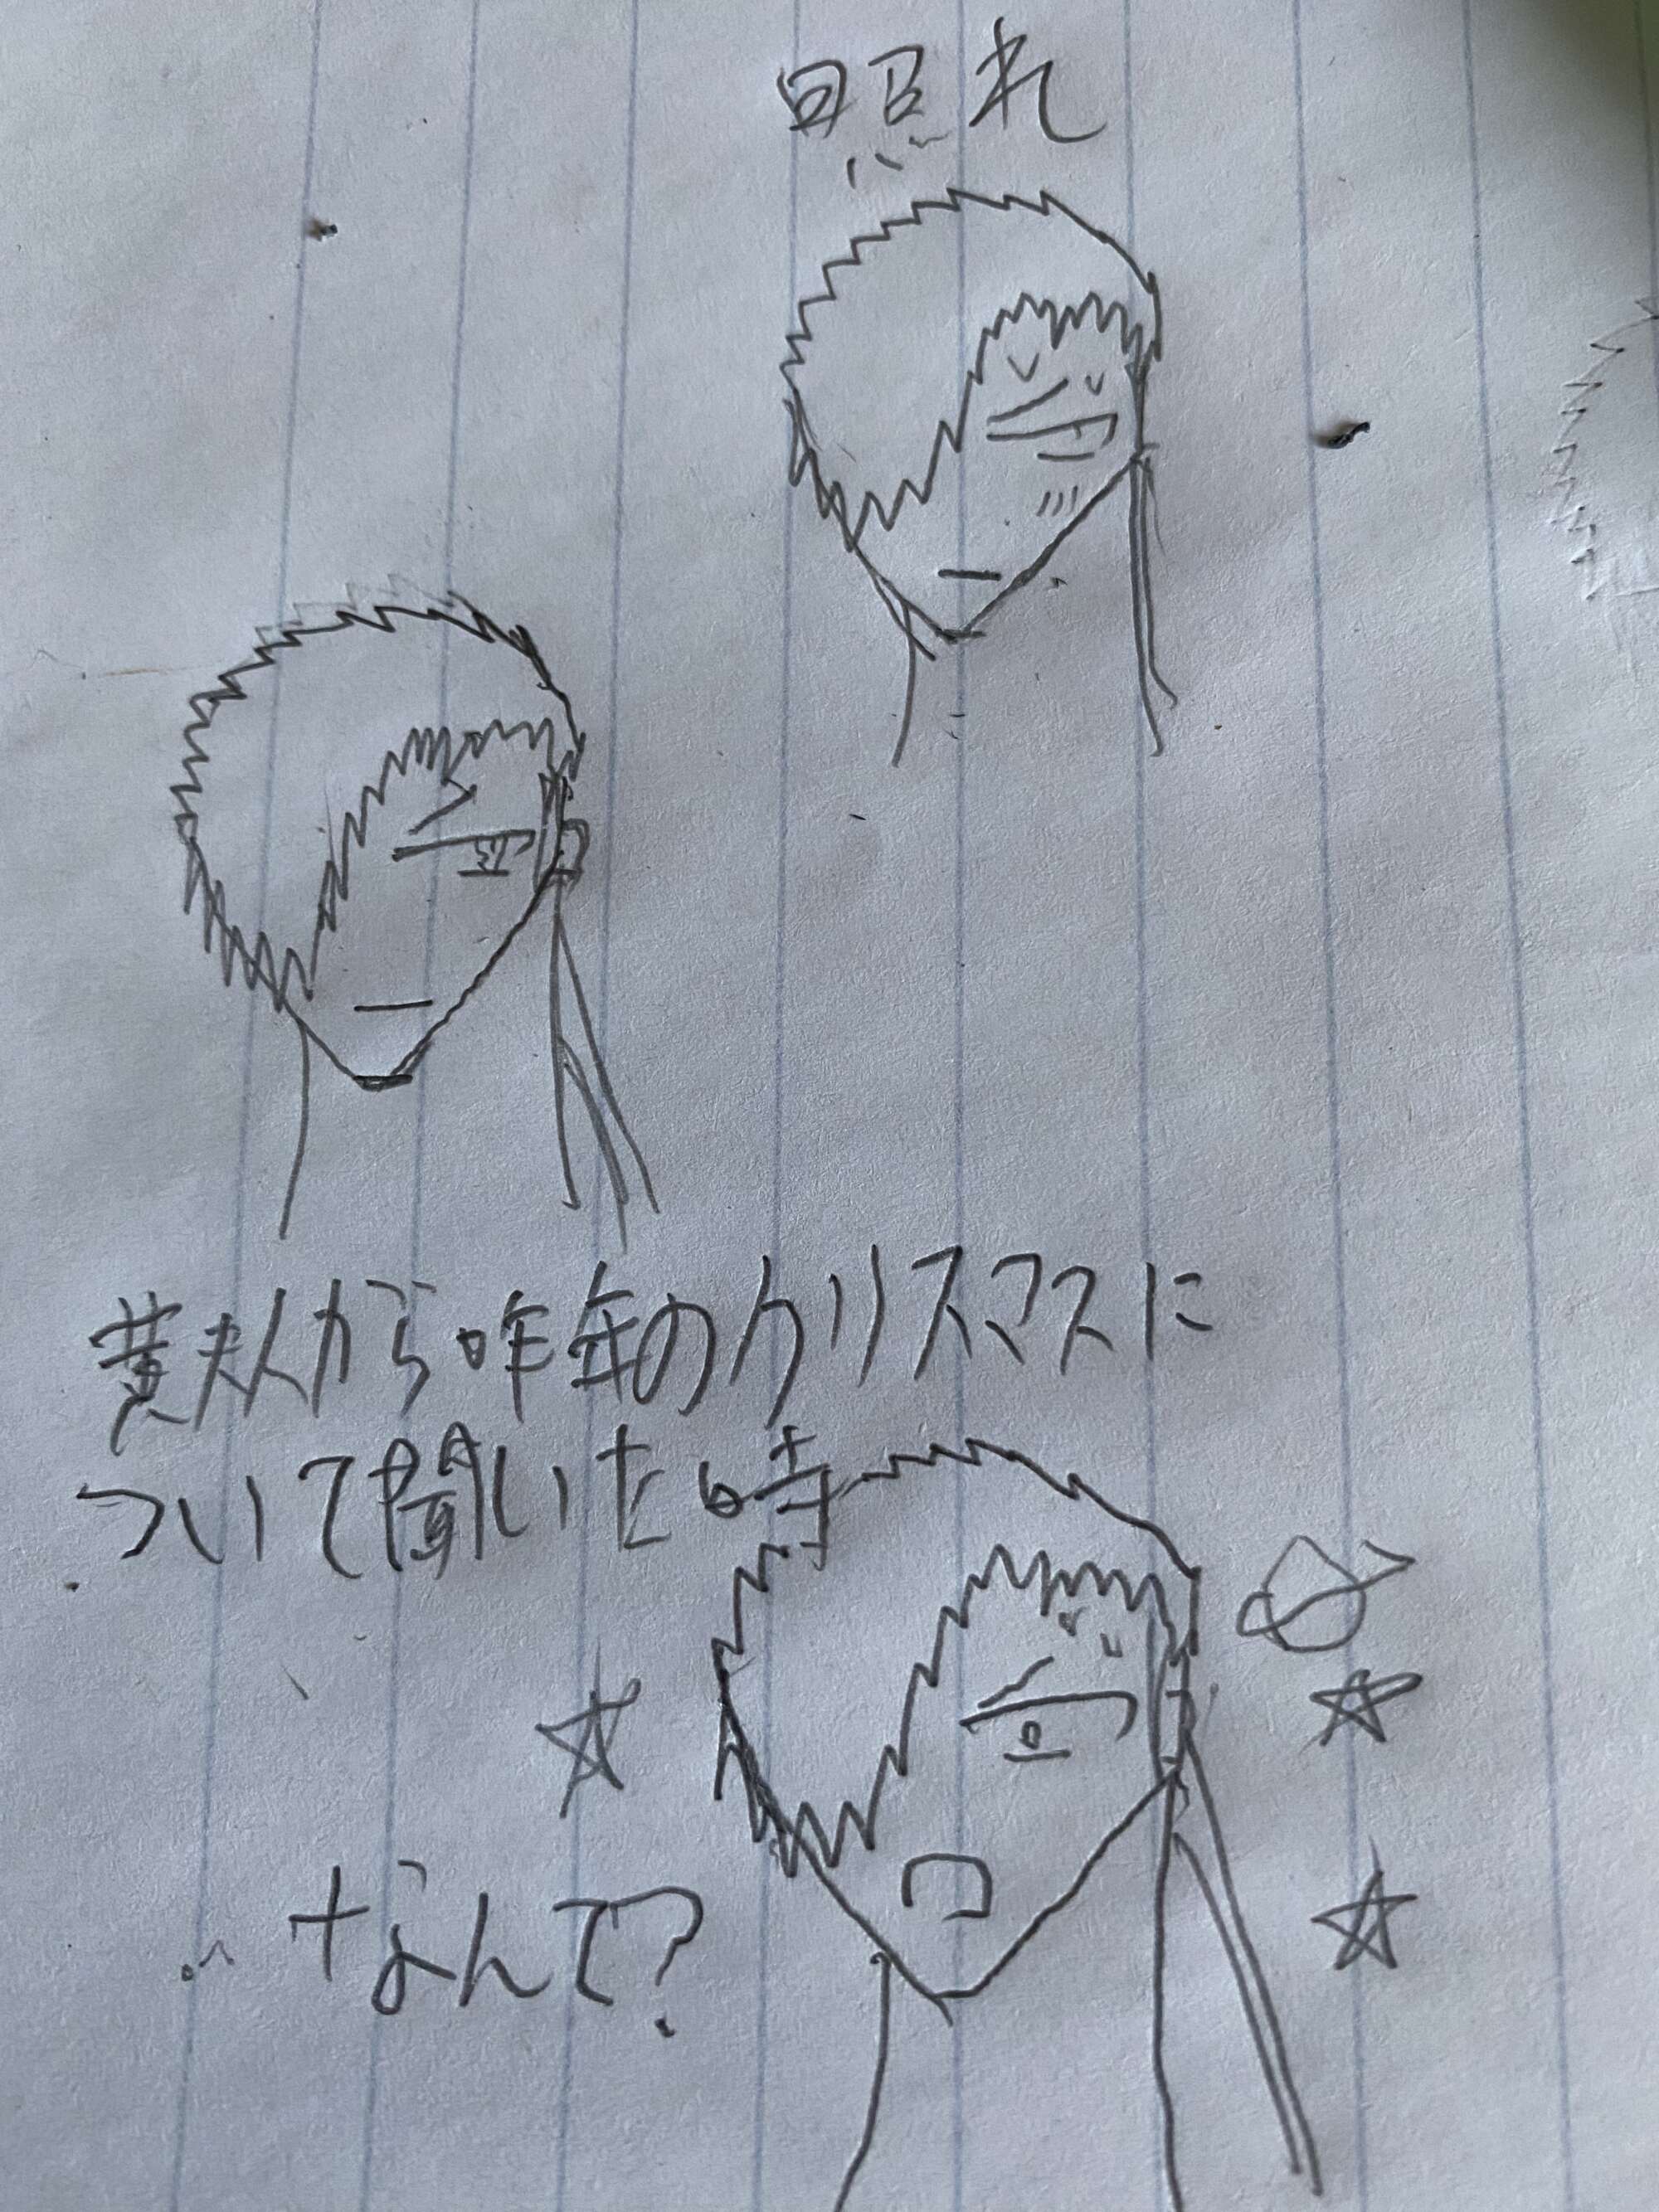 照れ
黄夫人から昨年のクリスマスに
ついて聞いた時
なんで?